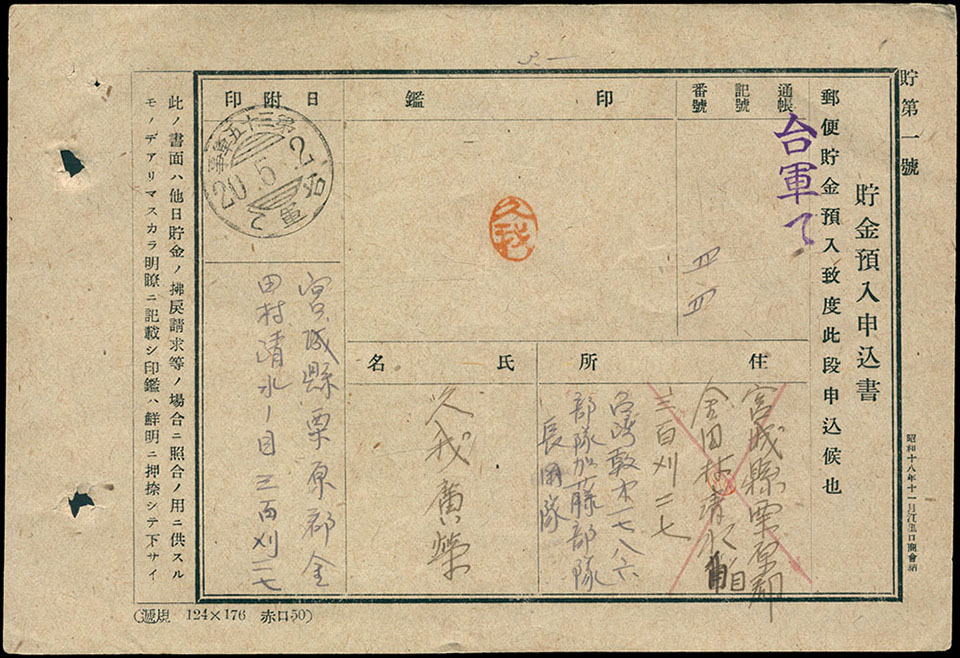 貯第一號
貯金預入申込書
昭和十八年十一月
郵便貯金預入致度此段申込候也
通帳
記號
番號
台軍て
四四
印鑑
久我
日附印
第三十五軍事
20.5.2
台軍て
住所
宮城縣栗原郡
金田村清水
三百刈二七
部隊加藤部隊
長田隊
氏名
久我廣榮
宮城縣栗原郡金
田村清水一目三百刈二七
此ノ書面ハ他日貯金ノ拂戻請求等ノ場合ニ照合ノ用ニ供スル
モノデアリマスカラ明瞭ニ記載シ印鑑ハ鮮明ニ押捺シテ下サイ
(遞規 124×176 赤口50)